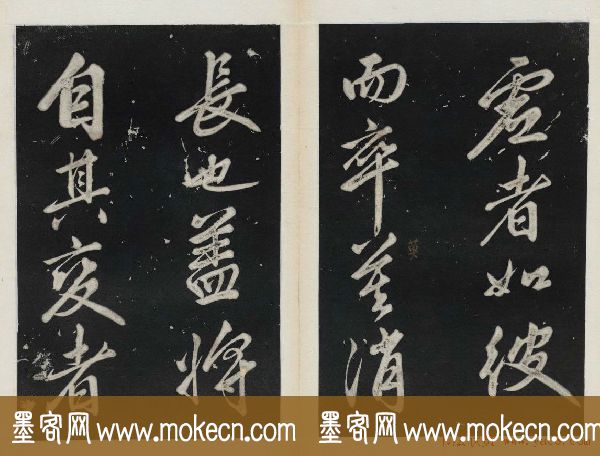 虚者如彼
而卒莫消
長也盖將
自其变者
墨客网 www.mokecn.com
墨客网 www.mokecn.com